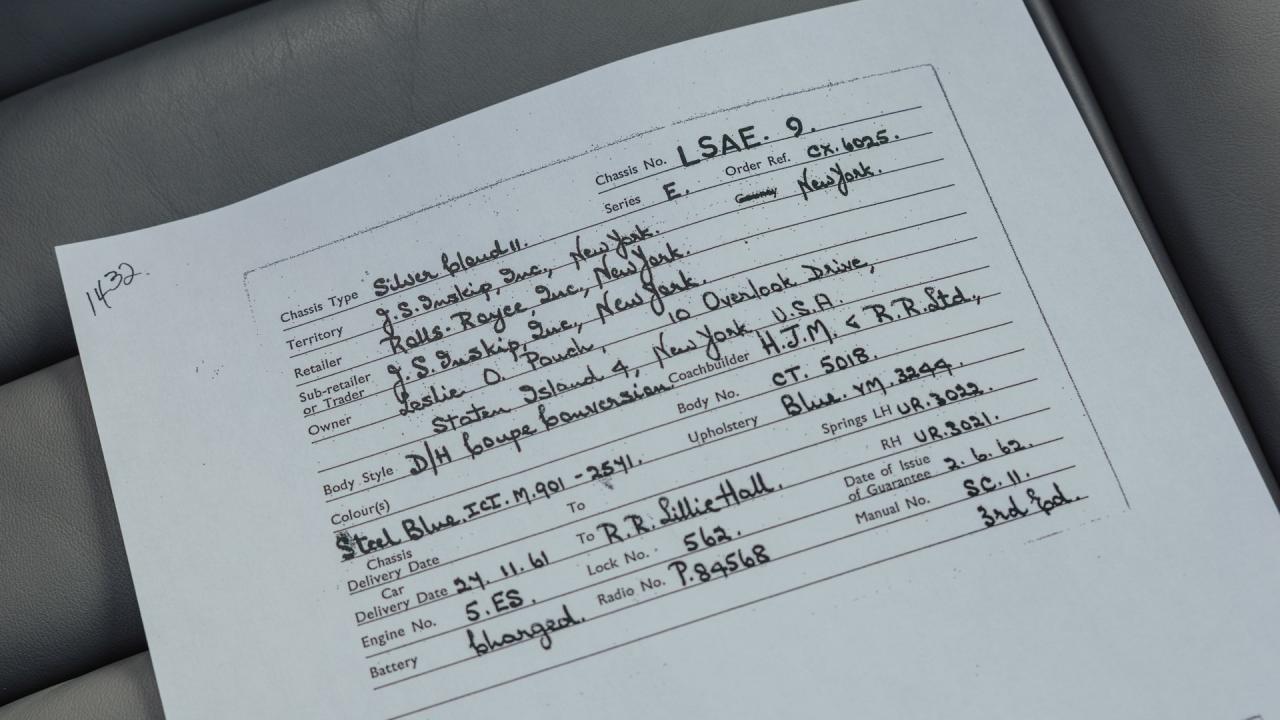 1432
Chassis No. LSAE. 9.
Series E. Order Ref. CX. 6025.
Chassis Type Silver Cloud II. County New York.
Territory J.S. Inskip, Inc., New York.
Retailer Rolls-Royce, Inc., New York.
Sub-retailer or Trader J.S. Inskip, Inc., New York.
Owner Leslie O. Pouch, 10 Overlook Drive,
Staten Island 4, New York U.S.A.
Body Style D/H Coupe Conversion. Coachbuilder H.J.M. & R.R. Ltd.,
Body No. CT. 5018.
Colour(s) Upholstery Blue. VM. 3244.
Steel Blue. ICI. M.901 - 2541. Springs LH UR. 3022.
Chassis Delivery Date To RH UR. 3021.
Car Delivery Date 24. 11. 61 To R.R. Lillie Hall. Date of Issue of Guarantee 2. 6. 62.
Engine No. 5. ES. Lock No. 562. Manual No. SC. II.
Battery Charged. Radio No. P. 84568 3rd Ed.